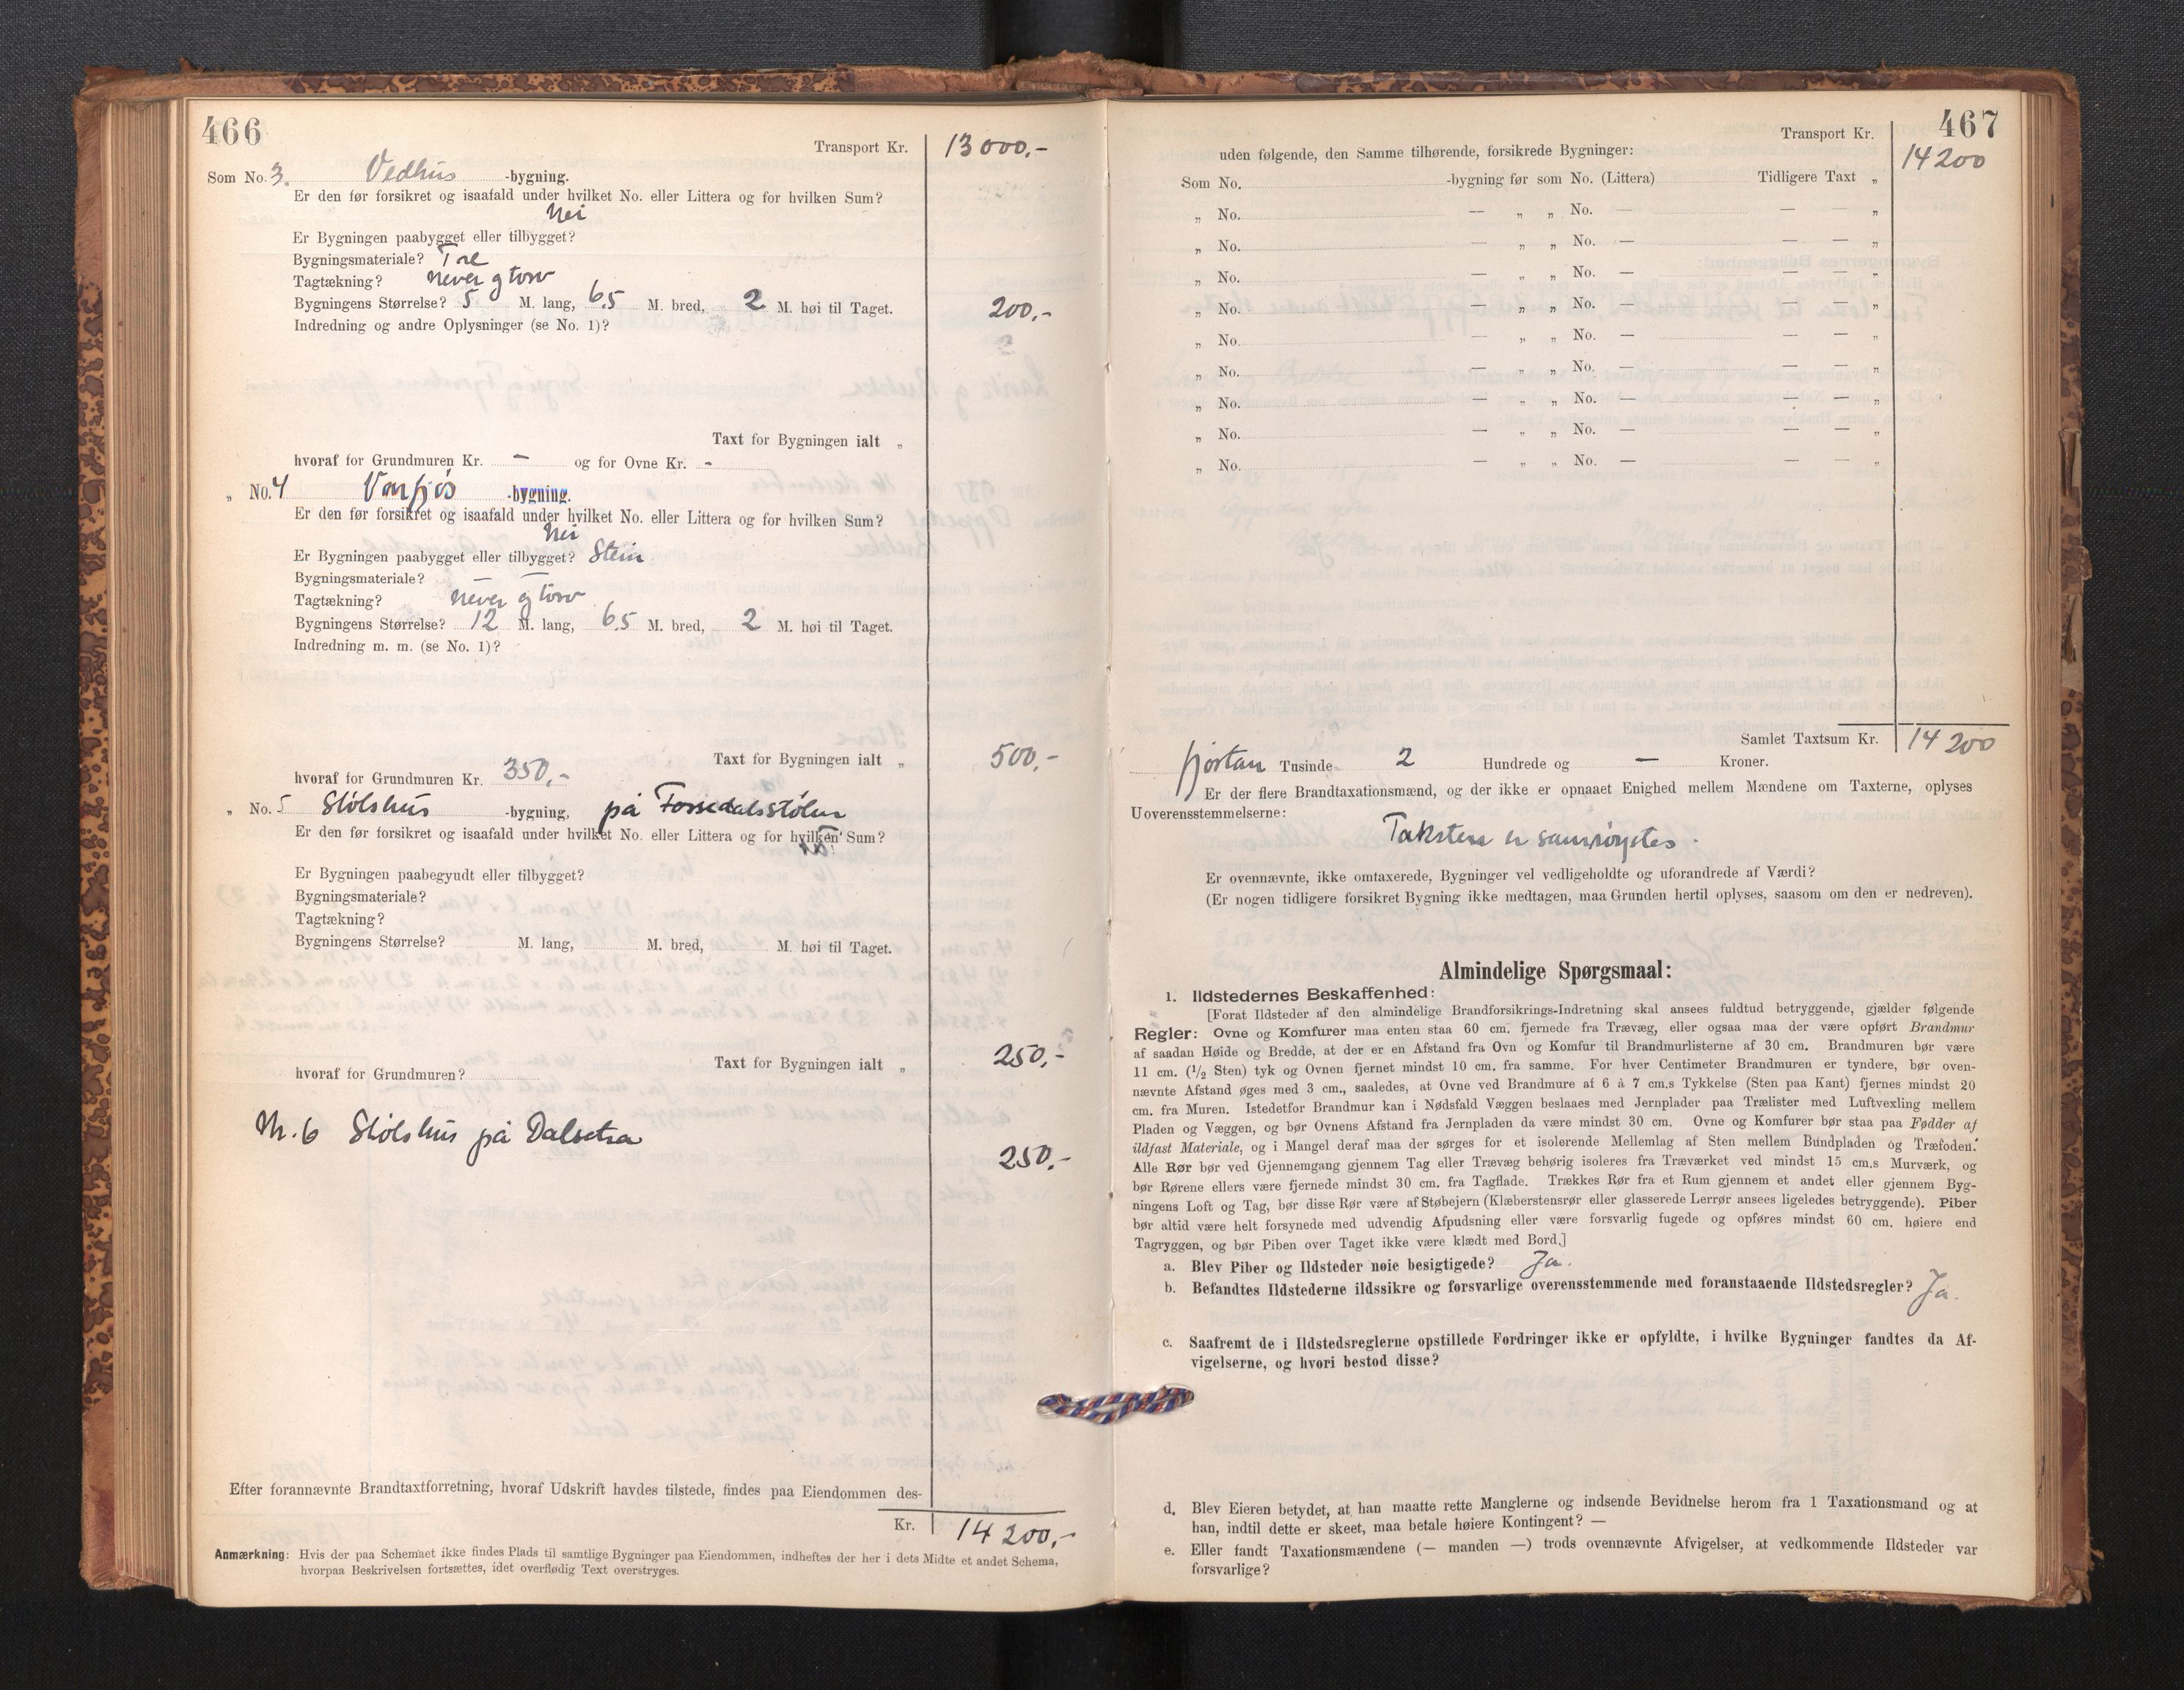 466
Transport Kr. 13000,-
Som No. 3. Vedhus -bygning.
Er den før forsikret og isaafald under hvilket No. eller Littera og for hvilken Sum?
Nei
Er Bygningen paabygget eller tilbygget?
Bygningsmateriale? Tre
Tagtækning? never og torv
Bygningens Størrelse? 5 M. lang, 6,5 M. bred, 2 M. høi til Taget. 200,-
Indredning og andre Oplysninger (se No. 1)?
Taxt for Bygningen ialt „
hvoraf for Grundmuren Kr. — og for Ovne Kr. -
„ No. 4 Vårfjøs -bygning.
Er den før forsikret og isaafald under hvilket No. eller Littera og for hvilken Sum?
Nei
Er Bygningen paabygget eller tilbygget? Stein
Bygningsmateriale?
Tagtækning? never og torv
Bygningens Størrelse? 12 M. lang, 6,5 M. bred, 2 M. høi til Taget.
Indredning m. m. (se No. 1)?
Taxt for Bygningen ialt „ 500,-
hvoraf for Grundmuren Kr. 350,-
„ No. 5 Stølshus -bygning, på Fossedalsstølen
Er den før forsikret og isaafald under hvilket No. eller Littera og for hvilken Sum?
Er Bygningen paabegyudt eller tilbygget?
Bygningsmateriale?
Tagtækning?
Bygningens Størrelse? M. lang, M. bred, M. høi til Taget.
Taxt for Bygningen ialt „ 250,-
hvoraf for Grundmuren?
Nr. 6 Stølshus på Dalsetra
250,-
Efter forannævnte Brandtaxtforretning, hvoraf Udskrift havdes tilstede, findes paa Eiendommen des-
Kr. 14 200,-
Anmærkning: Hvis der paa Schemaet ikke findes Plads til samtlige Bygninger paa Eiendommen, indheftes der her i dets Midte et andet Schema,
hvorpaa Beskrivelsen fortsættes, idet overflødig Text overstryges.
467
Transport Kr. 14200
uden følgende, den Samme tilhørende, forsikrede Bygninger:
Som No. -bygning før som No. (Littera) Tidligere Taxt „
„ No. — „ „ No. — — — „
„ No. — „ „ No. — — — „
„ No. — „ „ No. — — — „
„ No. — „ „ No. — — — „
„ No. — „ „ No. — — — „
„ No. — „ „ No. — — — „
„ No. — „ „ No. — — — „
„ No. — „ „ No. — — — „
„ No. — „ „ No. — — — „
Samlet Taxtsum Kr. 14 200
fjortan Tusinde 2 Hundrede og — Kroner.
Er der flere Brandtaxationsmænd, og der ikke er opnaaet Enighed mellem Mændene om Taxterne, oplyses
Uoverensstemmelserne:
Taksten er samrøystes.
Er ovennævnte, ikke omtaxerede, Bygninger vel vedligeholdte og uforandrede af Værdi?
(Er nogen tidligere forsikret Bygning ikke medtagen, maa Grunden hertil oplyses, saasom om den er nedreven).
Almindelige Spørgsmaal:
1. Ildstedernes Beskaffenhed:
[Forat Ildsteder af den almindelige Brandforsikrings-Indretning skal ansees fuldtud betryggende, gjælder følgende
Regler: Ovne og Komfurer maa enten staa 60 cm. fjernede fra Trævæg, eller ogsaa maa der være opført Brandmur
af saadan Høide og Bredde, at der er en Afstand fra Ovn og Komfur til Brandmurlisterne af 30 cm. Brandmuren bør være
11 cm. (1/2 Sten) tyk og Ovnen fjernet mindst 10 cm. fra samme. For hver Centimeter Brandmuren er tyndere, bør oven-
nævnte Afstand øges med 3 cm., saaledes, at Ovne ved Brandmure af 6 à 7 cm.s Tykkelse (Sten paa Kant) fjernes mindst 20
cm. fra Muren. Istedetfor Brandmur kan i Nødsfald Væggen beslaaes med Jernplader paa Trælister med Luftvexling mellem
Pladen og Væggen, og bør Ovnens Afstand fra Jernpladen da være mindst 30 cm. Ovne og Komfurer bør staa paa Fødder af
ildfast Materiale, og i Mangel deraf maa der sørges for et isolerende Mellemlag af Sten mellem Bundpladen og Træfoden.
Alle Rør bør ved Gjennemgang gjennem Tag eller Trævæg behørig isoleres fra Træværket ved mindst 15 cm.s Murværk, og
bør Rørene ellers være fjernede mindst 30 cm. fra Tagflade. Trækkes Rør fra et Rum gjennem et andet eller gjennem Byg-
ningens Loft og Tag, bør disse Rør være af Støbejern (Klæberstensrør eller glasserede Lerrør ansees ligeledes betryggende). Piber
bør altid være helt forsynede med udvendig Afpudsning eller være forsvarlig fugede og opføres mindst 60 cm. høiere end
Tagryggen, og bør Piben over Taget ikke være klædt med Bord.]
a. Blev Piber og Ildsteder nøie besigtigede? Ja.
b. Befandtes Ildstederne ildssikre og forsvarlige overensstemmende med foranstaaende Ildstedsregler? Ja.
c. Saafremt de i Ildstedsreglerne opstillede Fordringer ikke er opfyldte, i hvilke Bygninger fandtes da Af-
vigelserne, og hvori bestod disse?
d. Blev Eieren betydet, at han maatte rette Manglerne og indsende Bevidnelse herom fra 1 Taxationsmand og at
han, indtil dette er skeet, maa betale høiere Kontingent? —
e. Eller fandt Taxationsmændene (— manden —) trods ovennævnte Afvigelser, at vedkommende Ildsteder var
forsvarlige?